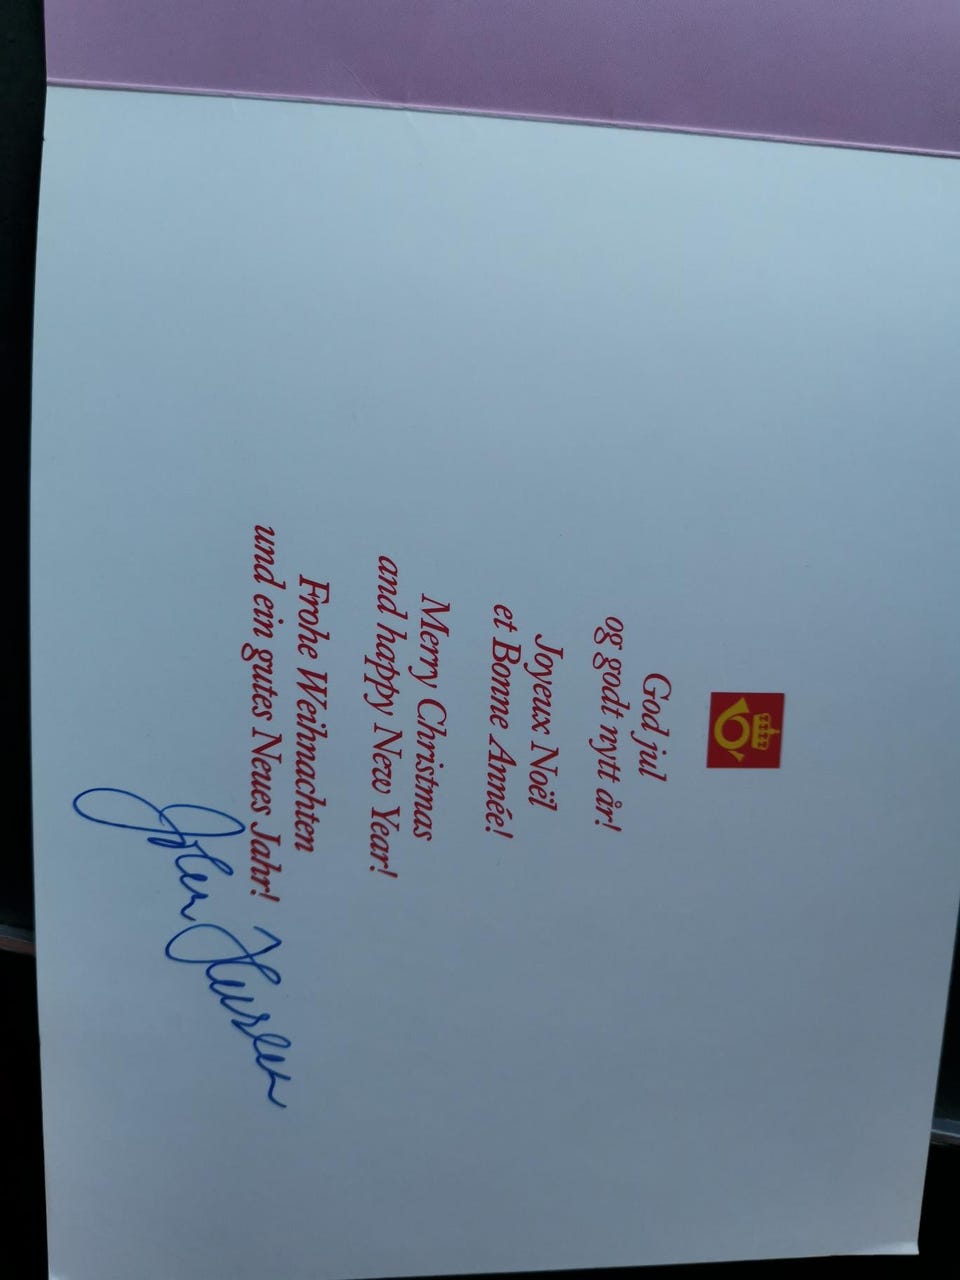 God jul
og godt nytt år!
Joyeux Noël
et Bonne Année!
Merry Christmas
and happy New Year!
Frohe Weihnachten
und ein gutes Neues Jahr!